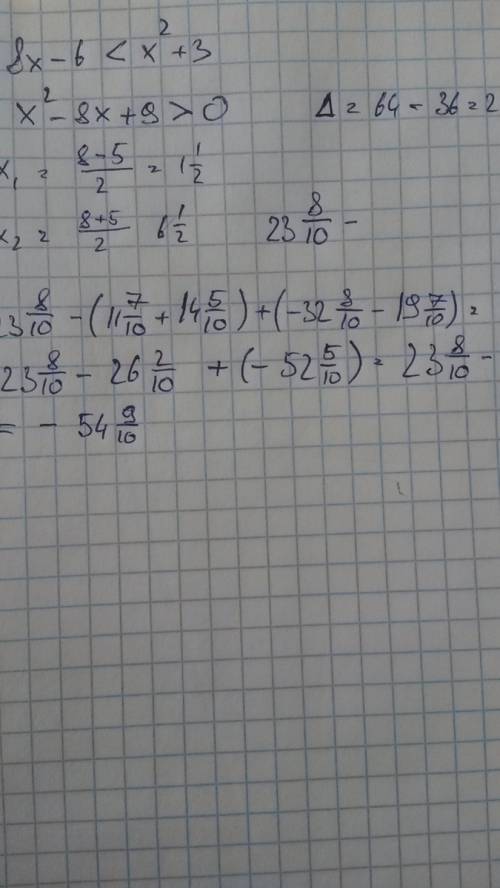 8x - 6 < x² + 3
x² - 8x + 9 > 0    Δ = 64 - 36 = 2
x₁ = (8-5)/2 = 1 1/2
x₂ = (8+5)/2  6 1/2    23 8/10 -
23 8/10 - (11 7/10 + 14 5/10) + (-32 8/10 - 19 7/10) =
23 8/10 - 26 2/10 + (- 52 5/10) = 23 8/10 -
= - 54 9/10